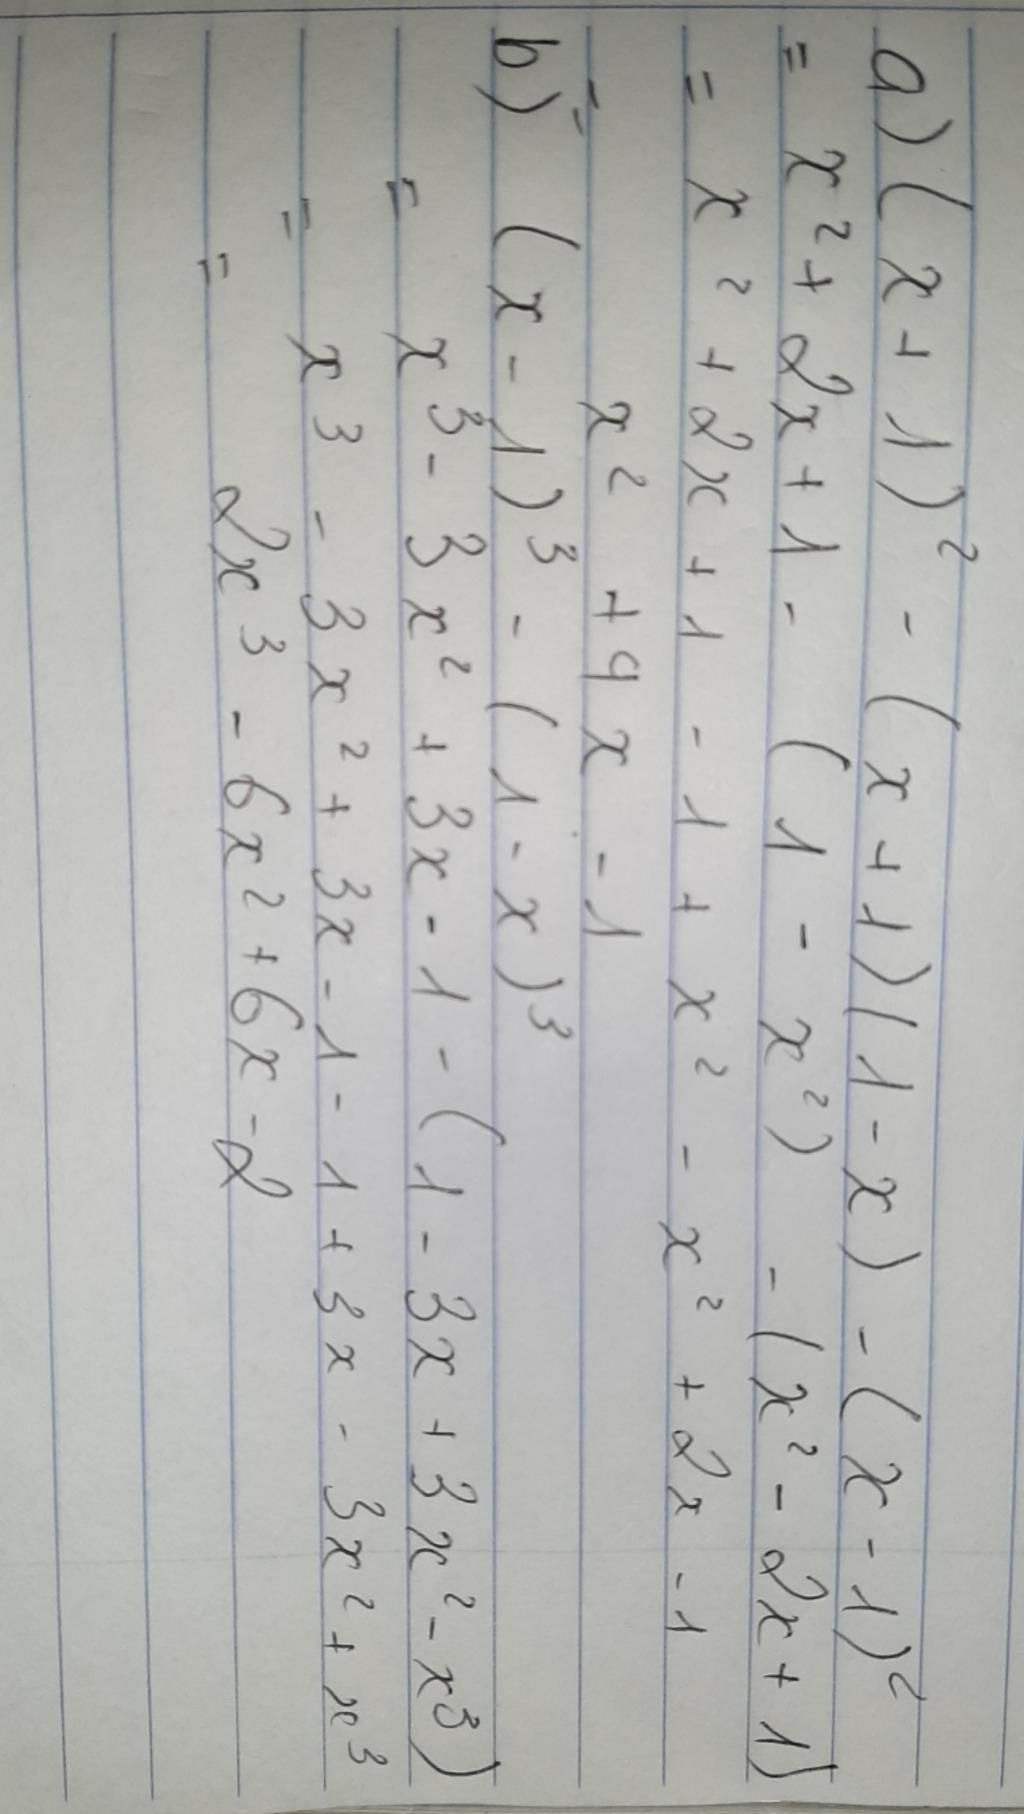 a) (x + 1)² - (x + 1)(1 - x) - (x - 1)²
= x² + 2x + 1 - (1 - x²) - (x² - 2x + 1)
= x² + 2x + 1 - 1 + x² - x² + 2x - 1
= x² + 4x - 1
b) (x - 1)³ - (1 - x)³
= x³ - 3x² + 3x - 1 - (1 - 3x + 3x² - x³)
= x³ - 3x² + 3x - 1 - 1 + 3x - 3x² + x³
= 2x³ - 6x² + 6x - 2